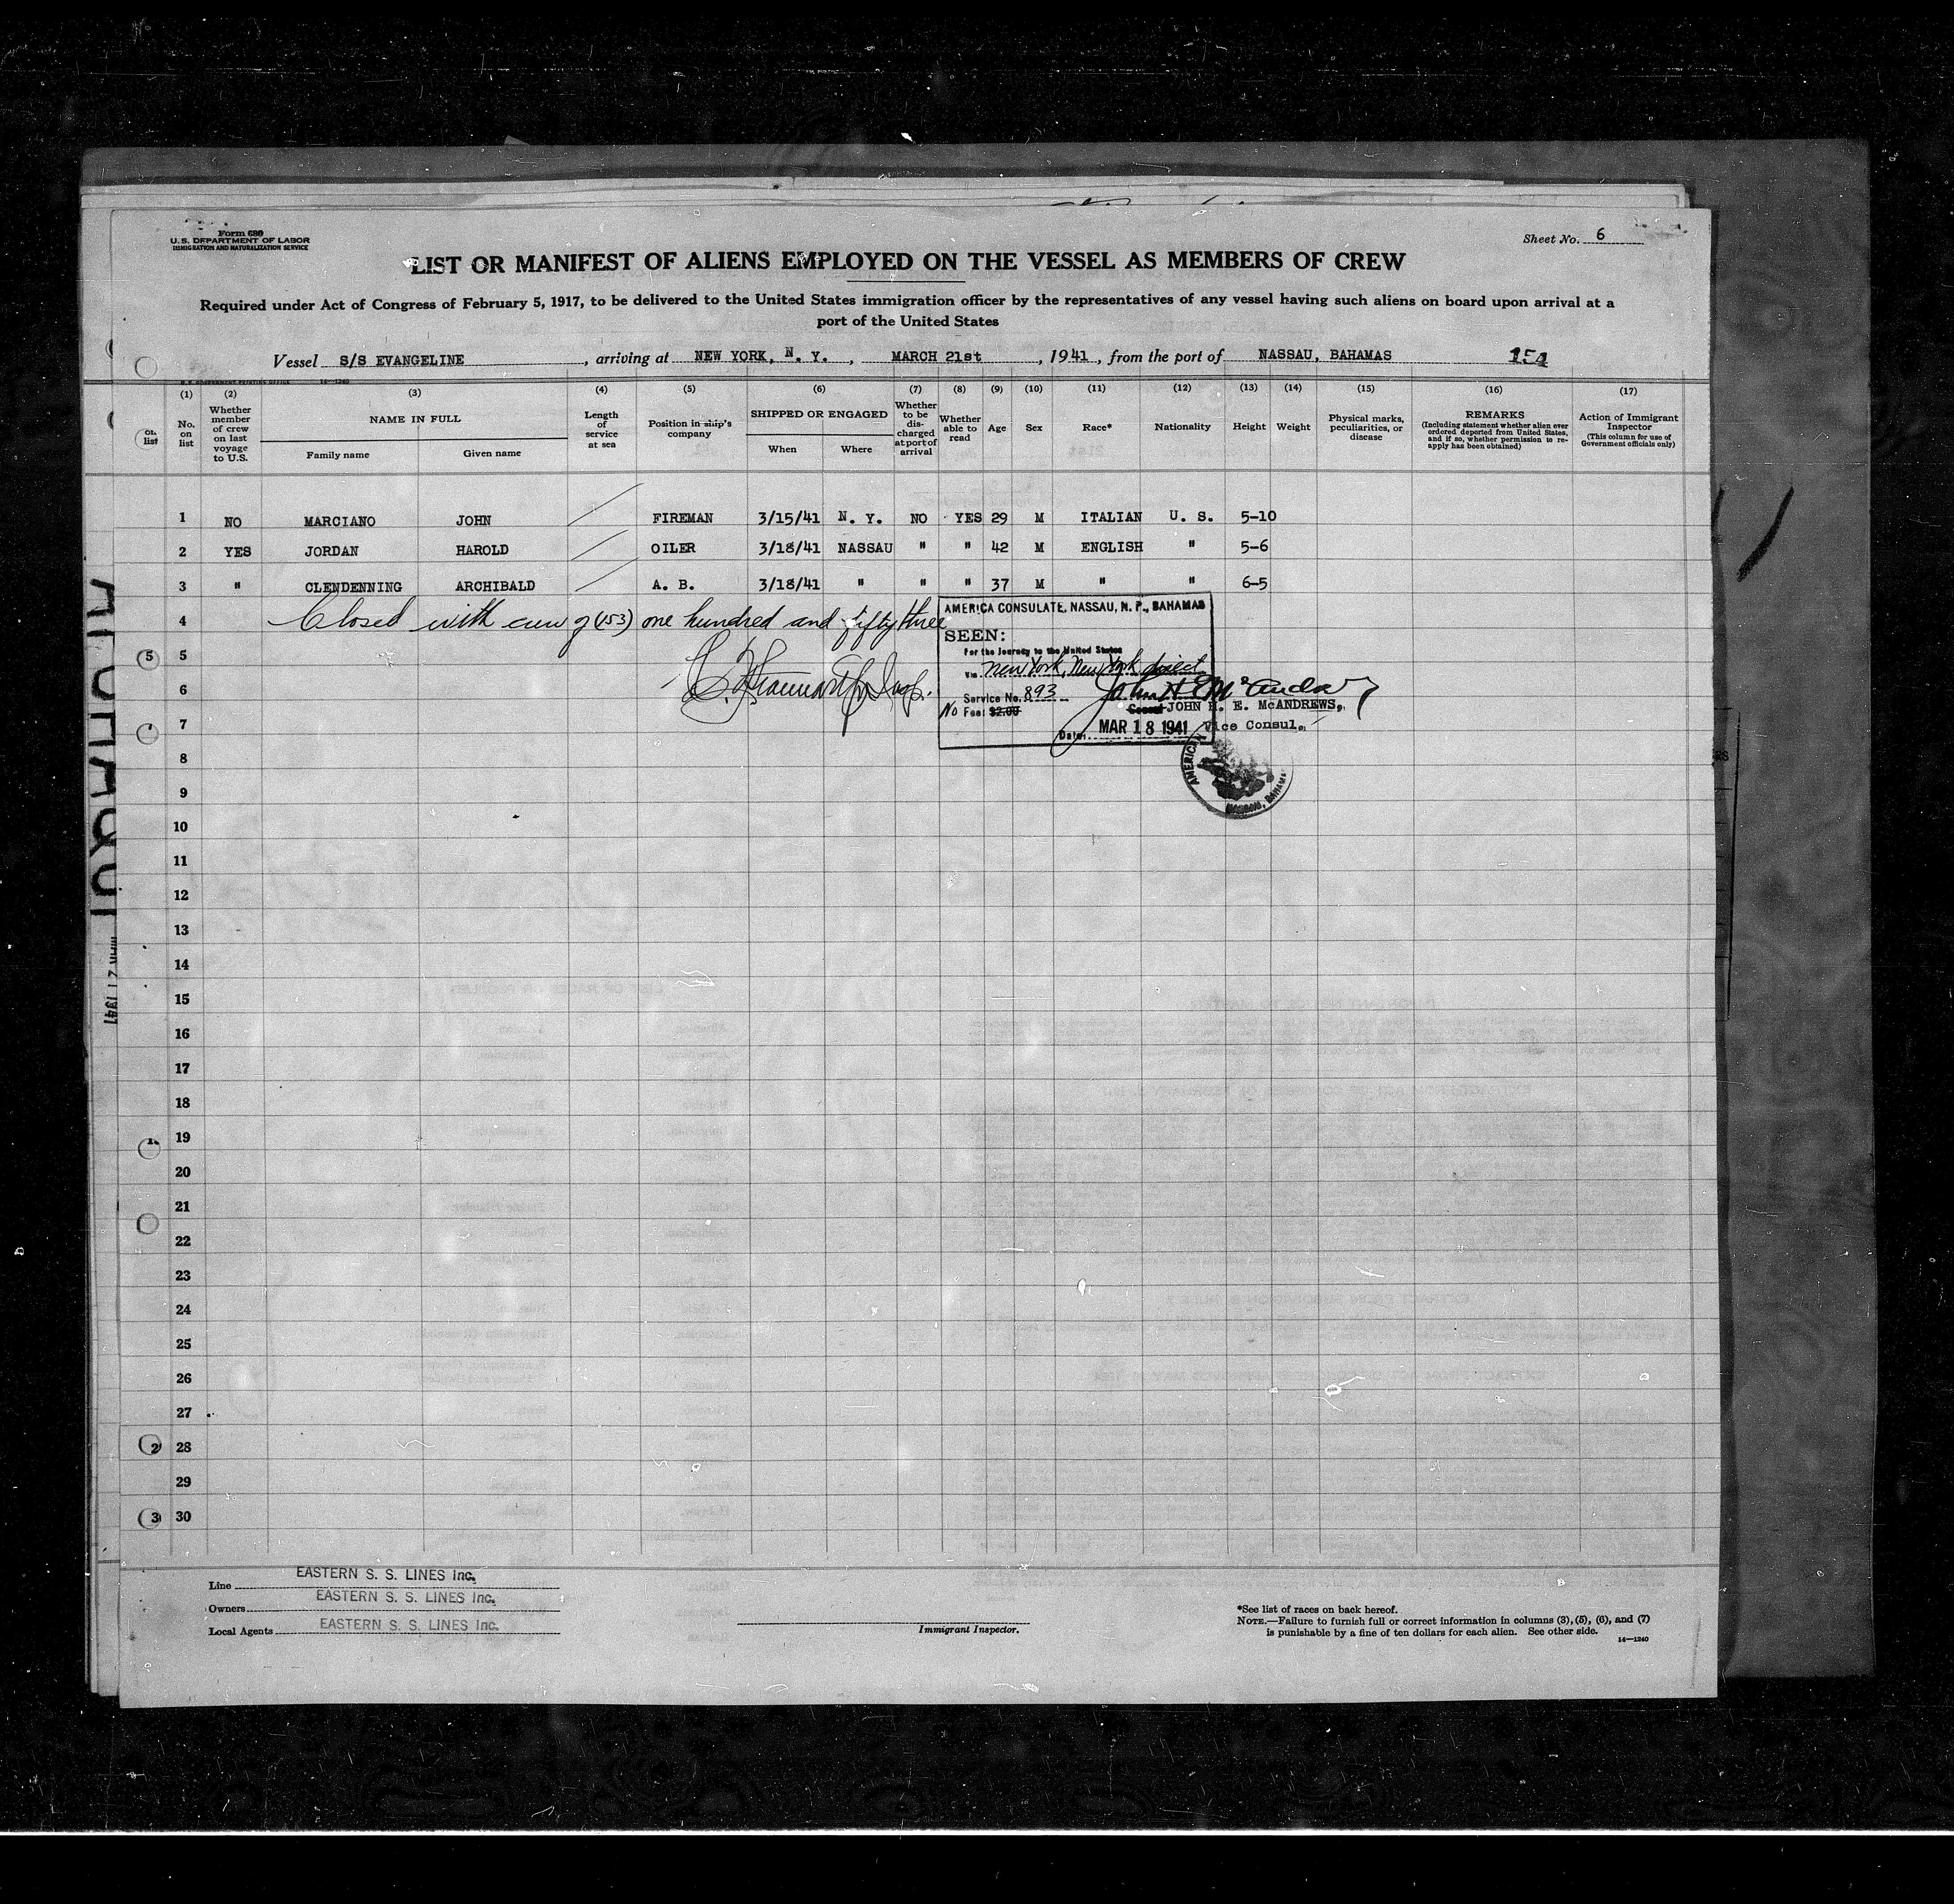 Form 680
U.S. DEPARTMENT OF LABOR
IMMIGRATION AND NATURALIZATION SERVICE
Sheet No. 6
LIST OR MANIFEST OF ALIENS EMPLOYED ON THE VESSEL AS MEMBERS OF CREW
Required under Act of Congress of February 5, 1917, to be delivered to the United States immigration officer by the representatives of any vessel having such aliens on board upon arrival at a
port of the United States
Vessel S/S EVANGELINE, arriving at NEW YORK, N. Y., MARCH 21st, 1941, from the port of NASSAU, BAHAMAS 154
(1) (2) (3) (4) (5) (6) (7) (8) (9) (10) (11) (12) (13) (14) (15) (16) (17)
No. on list
Whether member of crew on last voyage to U.S.
NAME IN FULL
Family name
Given name
Length of service at sea
Position in ship's company
SHIPPED OR ENGAGED
When
Where
Whether to be discharged at port of arrival
Whether able to read
Age
Sex
Race*
Nationality
Height
Weight
Physical marks, peculiarities, or disease
REMARKS
(Including statement whether alien ever ordered deported from United States, and if so, whether permission to reapply has been obtained)
Action of Immigrant Inspector
(This column for use of Government officials only)
1 NO MARCIANO JOHN FIREMAN 3/15/41 N. Y. NO YES 29 M ITALIAN U. S. 5-10
2 YES JORDAN HAROLD OILER 3/18/41 NASSAU " " 42 M ENGLISH " 5-6
3 " CLENDENNING ARCHIBALD A. B. 3/18/41 " " " 37 M " " 6-5
4 Closed with crew of (153) one hundred and fifty three
AMERICA CONSULATE, NASSAU, N. P., BAHAMAS
SEEN:
For the Journey to the United States
Via New York, New York direct
Service No. 893
No Fee: $2.00
Consul JOHN H. E. McANDREWS,
Date: MAR 18 1941 Vice Consul.
AMERICAN
NASSAU, BAHAMAS
5
6
7
8
9
10
11
12
13
14
15
16
17
18
19
20
21
22
23
24
25
26
27
28
29
30
MAR 21 1941
Line EASTERN S. S. LINES Inc.
Owners EASTERN S. S. LINES Inc.
Local Agents EASTERN S. S. LINES Inc.
Immigrant Inspector.
*See list of races on back hereof.
NOTE.—Failure to furnish full or correct information in columns (3), (5), (6), and (7)
is punishable by a fine of ten dollars for each alien. See other side.
14—1240